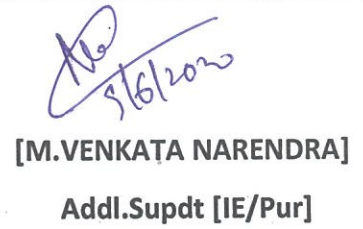 5/6/2020
[M.VENKATA NARENDRA]
Addl.Supdt [IE/Pur]